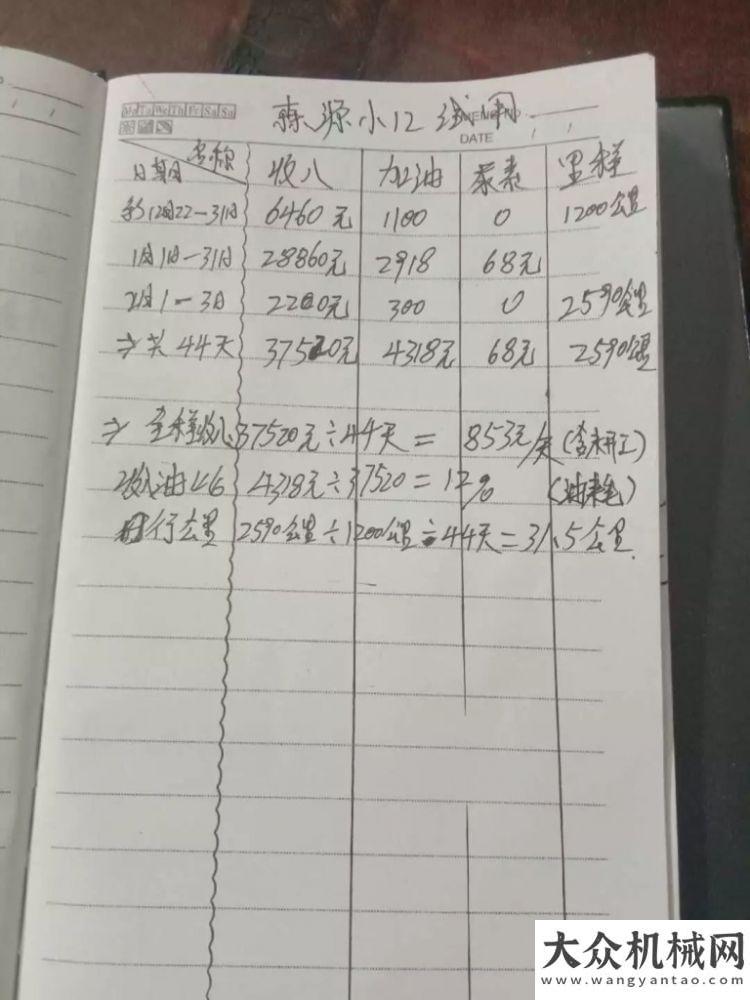 Mo Tu We Th Fr Sa Su
森源小12试用
DATE
名称
日期 收入 加油 尿素 里程
12月22-31日 6460元 1100 0 1200公里
1月1日-31日 28860元 2918 68元
2月1-3日 2200元 300 0 2590公里
⇒共44天 37520元 4318元 68元 2590公里
⇒全程收入37520元÷44天= 853元/天(含未开工)
油 4318元÷37520=12% (油耗)
日行公里 2590公里÷1200公里÷44天=31.5公里
大众机械网
www.wangyantao.com